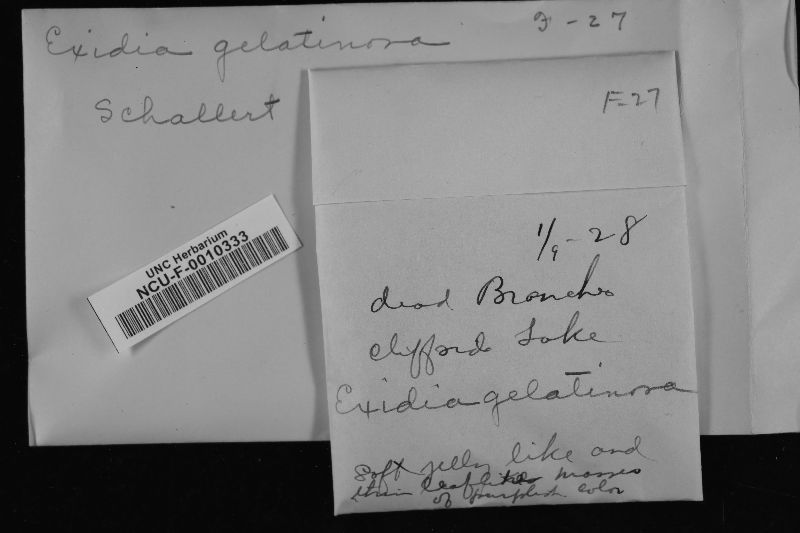 Exidia gelatinosa
F-27
Schallert
UNC Herbarium
NCU-F-0010333
F-27
1/9-28
dead Branches
Clifford Lake
Exidia gelatinosa
Soft jelly like and
thin leaflike masses
of purplish color